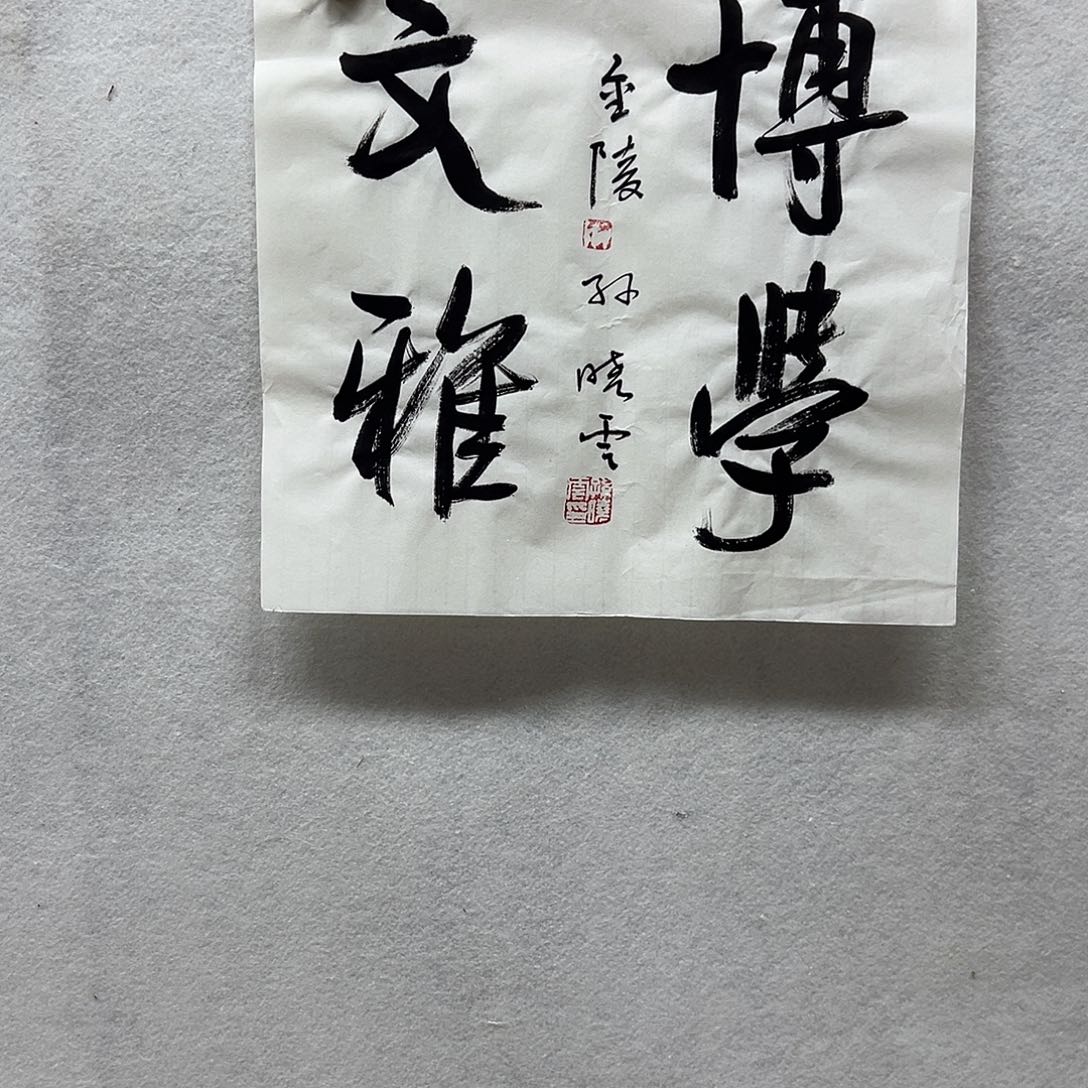 博學
金陵
孙晓云
文雅